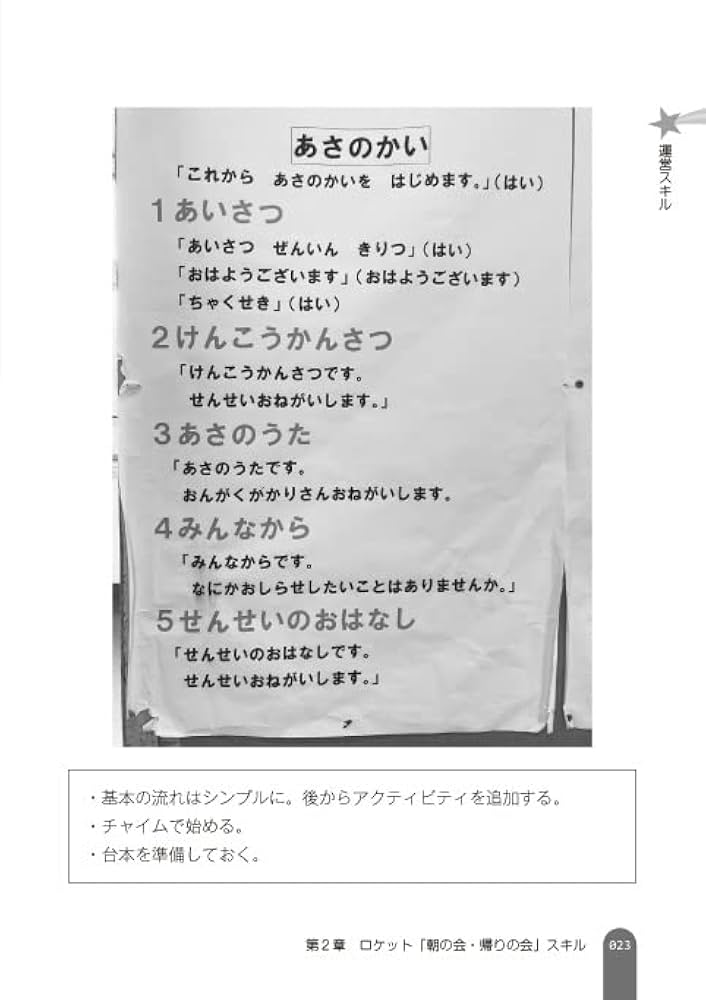 運営スキル
あさのかい
「これから　あさのかいを　はじめます。」(はい)
1あいさつ
「あいさつ　ぜんいん　きりつ」(はい)
「おはようございます」(おはようございます)
「ちゃくせき」(はい)
2けんこうかんさつ
「けんこうかんさつです。
せんせいおねがいします。」
3あさのうた
「あさのうたです。
おんがくがかりさんおねがいします。
4みんなから
「みんなからです。
なにかおしらせしたいことはありませんか。」
5せんせいのおはなし
「せんせいのおはなしです。
せんせいおねがいします。」
・基本の流れはシンプルに。後からアクティビティを追加する。
・チャイムで始める。
・台本を準備しておく。
第2章　ロケット「朝の会・帰りの会」スキル　023